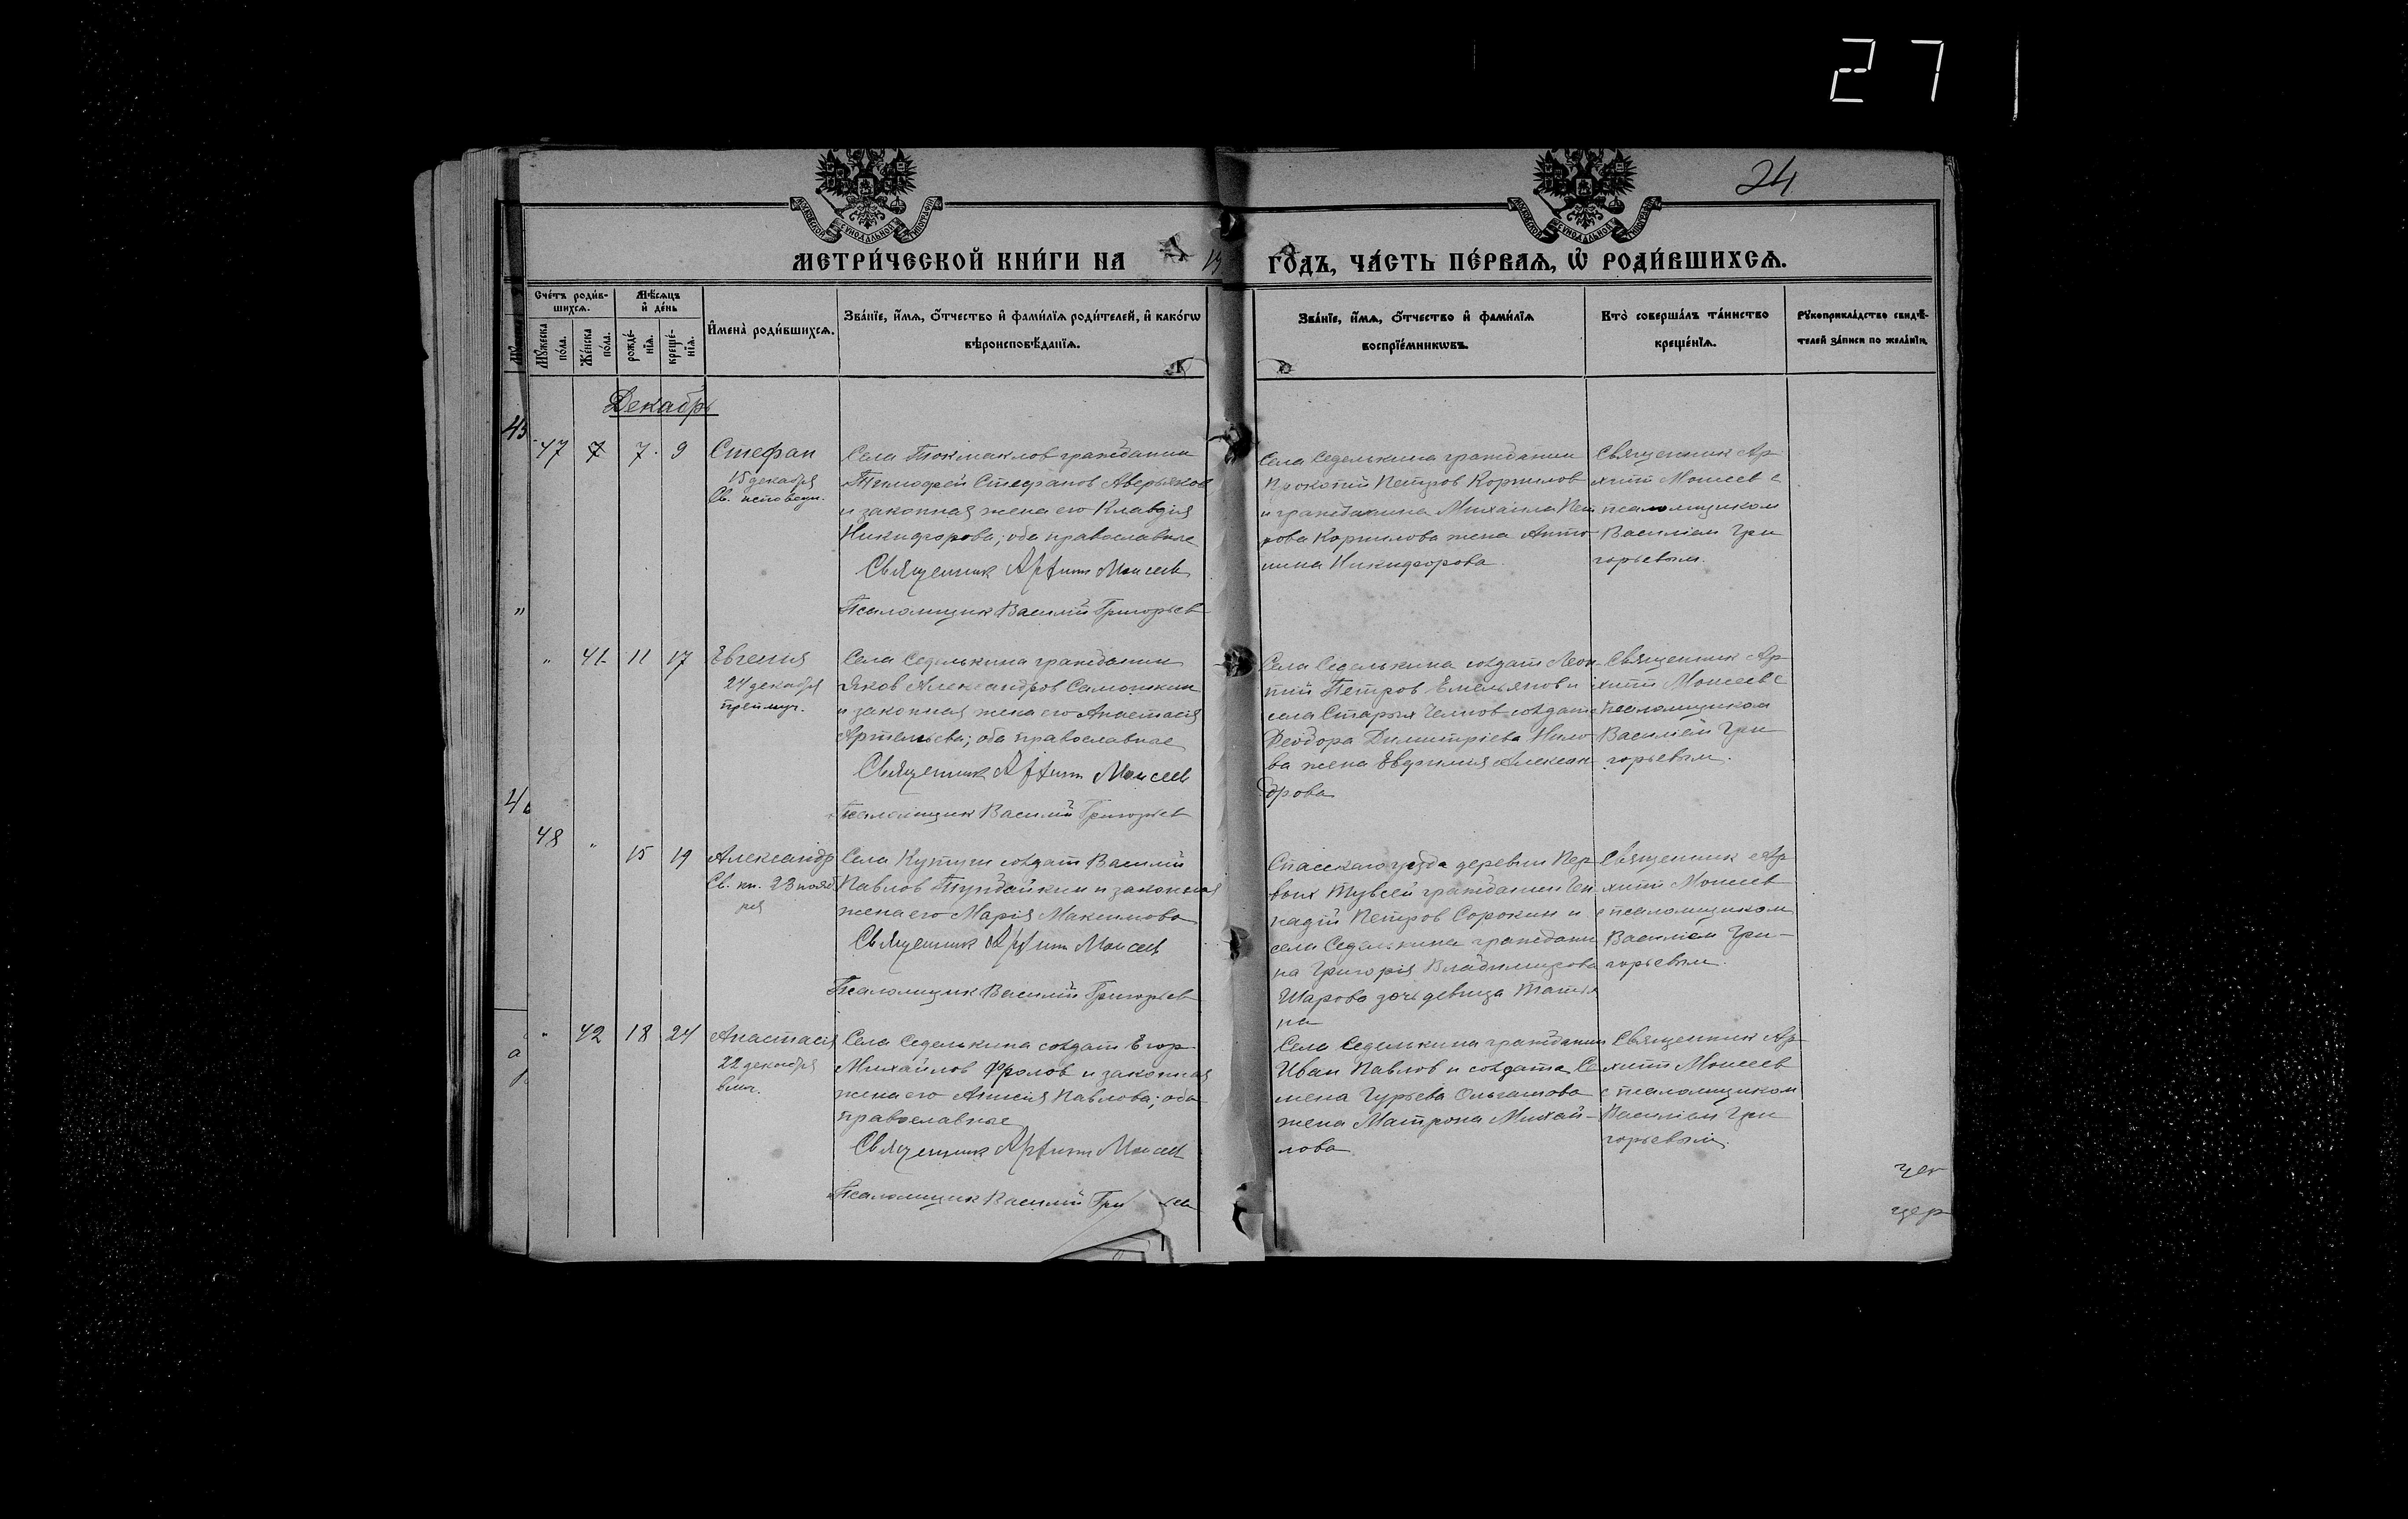 27
24
МЕТРИ́ЧЕСКОЙ КНИ́ГИ НА 19 ГО́ДЪ, ЧА́СТЬ ПЕ́РВАѦ, Ѡ҆ РОДИ́ВШИХСѦ.
Сче́тъ роди́в-
шихсѧ.
Мѣ́сѧцъ
и҆ де́нь
Мꙋ́жеска
по́ла.
Же́нска
по́ла.
рожде́-
нїѧ.
креще́-
нїѧ.
И҆мена̀ роди́вшихсѧ.
Зва́нїе, и҆́мѧ, ѻ҆́тчество и҆ фами́лїѧ роди́телей, и҆ како́гѡ
вѣроисповѣ́данїѧ.
Зва́нїе, и҆́мѧ, ѻ҆́тчество и҆ фами́лїѧ
воспрїе́мникѡвъ.
Кто̀ соверша́лъ та́инство
креще́нїѧ.
Рꙋкоприкла́дство свидѣ́-
телей за́писи по жела́нїю.
Декабрь
47 7 7 9
Стефан
15 декабря
Св. исповедн.
Села Токмаклов гражданин
Тимофей Стефанов Аверьянов
и законная жена его Клавдия
Никифорова; оба православные
Священник Архипп Моисеев
Псаломщик Василий Григорьев
Села Седелькина гражданин
Прокопий Петров Корнилов
и гражданина Михаила Пет
рова Корнилова жена Анто
нина Никифорова
Священник Ар
хипп Моисеев с
псаломщиком
Василием Гри
горьевым.
" 41 11 17
Евгения
24 декабря
Села Седелькина гражданин
Яков Александров Самошкин
и законная жена его Анастасия
оба православные
Священник Архипп Моисеев
Псаломщик Василий Григорьев
Села Седелькина солдат Леон-
тий Петров Емельянов и
села Старых Челнов солдата
Феодора Димитриева
жена Евфимия Алексан-
дрова
Священник Ар
хипп Моисеев с
псаломщиком
Василием Гри
горьевым.
48 " 15 19
Александр
Св. кн. 23 нояб
ря
Села Кутуги солдат Василий
Павлов и законная
жена его Мария Максимова
Священник Архипп Моисеев
Псаломщик Василий Григорьев
Спасского уезда деревни Пер
вых Тувсей гражданин Ген
надий Петров Сорокин и
села Седелькина граждани
на Григория Владимирова
Шарова дочь девица Татья
на
Священник Ар
хипп Моисеев
с псаломщиком
Василием Гри-
горьевым.
" 42 18 24
Анастасия
22 декабря
влмч.
Села Седелькина солдат Егор
Михайлов Фролов и законная
жена его Анисия Павлова; оба
православные
Священник Архипп Моисеев
Псаломщик Василий Гри
Села Седелькина гражданин
Иван Павлов и солдата Се
мена Гурьева
жена Матрона Михай-
лова
Священник Ар
хипп Моисеев
с псаломщиком
Василием Гри
горьевым.
цер